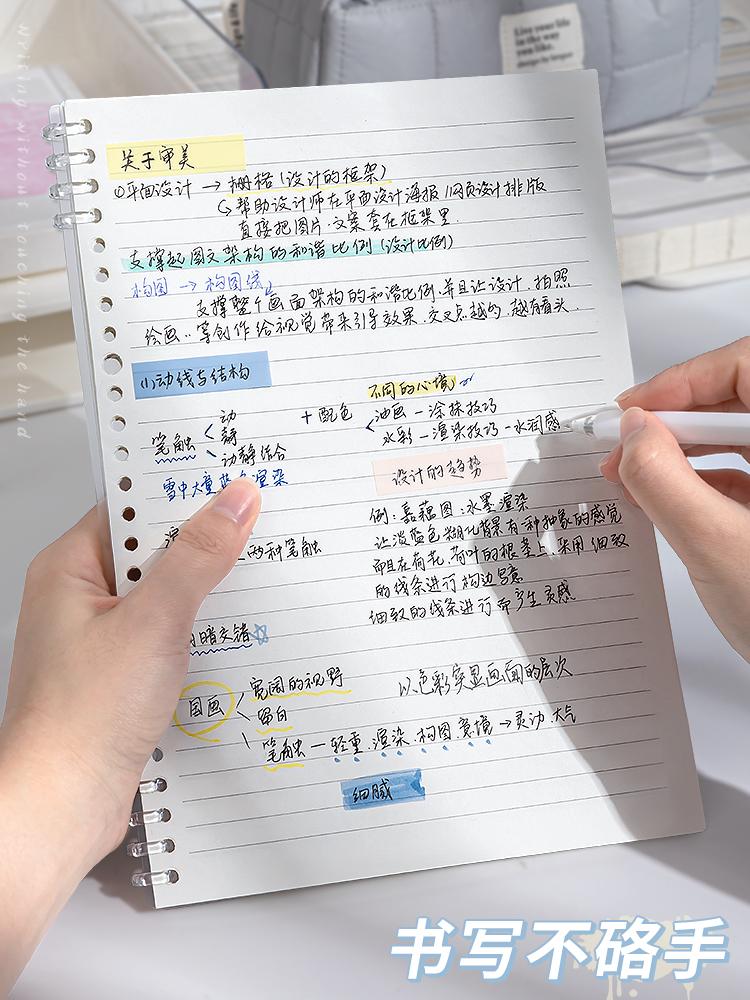 Live your life
in the way
you like.
writing without touching the hand
关于审美
①平面设计 → 栅格(设计的框架)
↳ 帮助设计师在平面设计海报 网页设计排版
直接把图片.文案套在框架里.
支撑起图文架构的和谐比例(设计比例)
构图 → 构图线
支撑整个画面架构的和谐比例.并且让设计.拍照
绘画..等创作给视觉带来引导效果.交叉点越多.越有看头.
(1)动线与结构
不同的心境
笔触 < 动
静
动静结合
+ 配色
油画 — 涂抹技巧
水彩 — 渲染技巧 — 水润感
雪中大量蓝色渲染
设计的趋势
两种笔触
例:嘉藕图:水墨渲染
让淡蓝色糊化背景有一种抽象的感觉
而且在荷花.荷叶的根茎上.采用细致
的线条进行构边
细致的线条进行而产生灵感
明暗交错☆
国画 < 宽阔的视野
留白
笔触 — 轻重.渲染.构图.意境 → 灵动.大气
以色彩突显画面的层次
细腻
书写不硌手